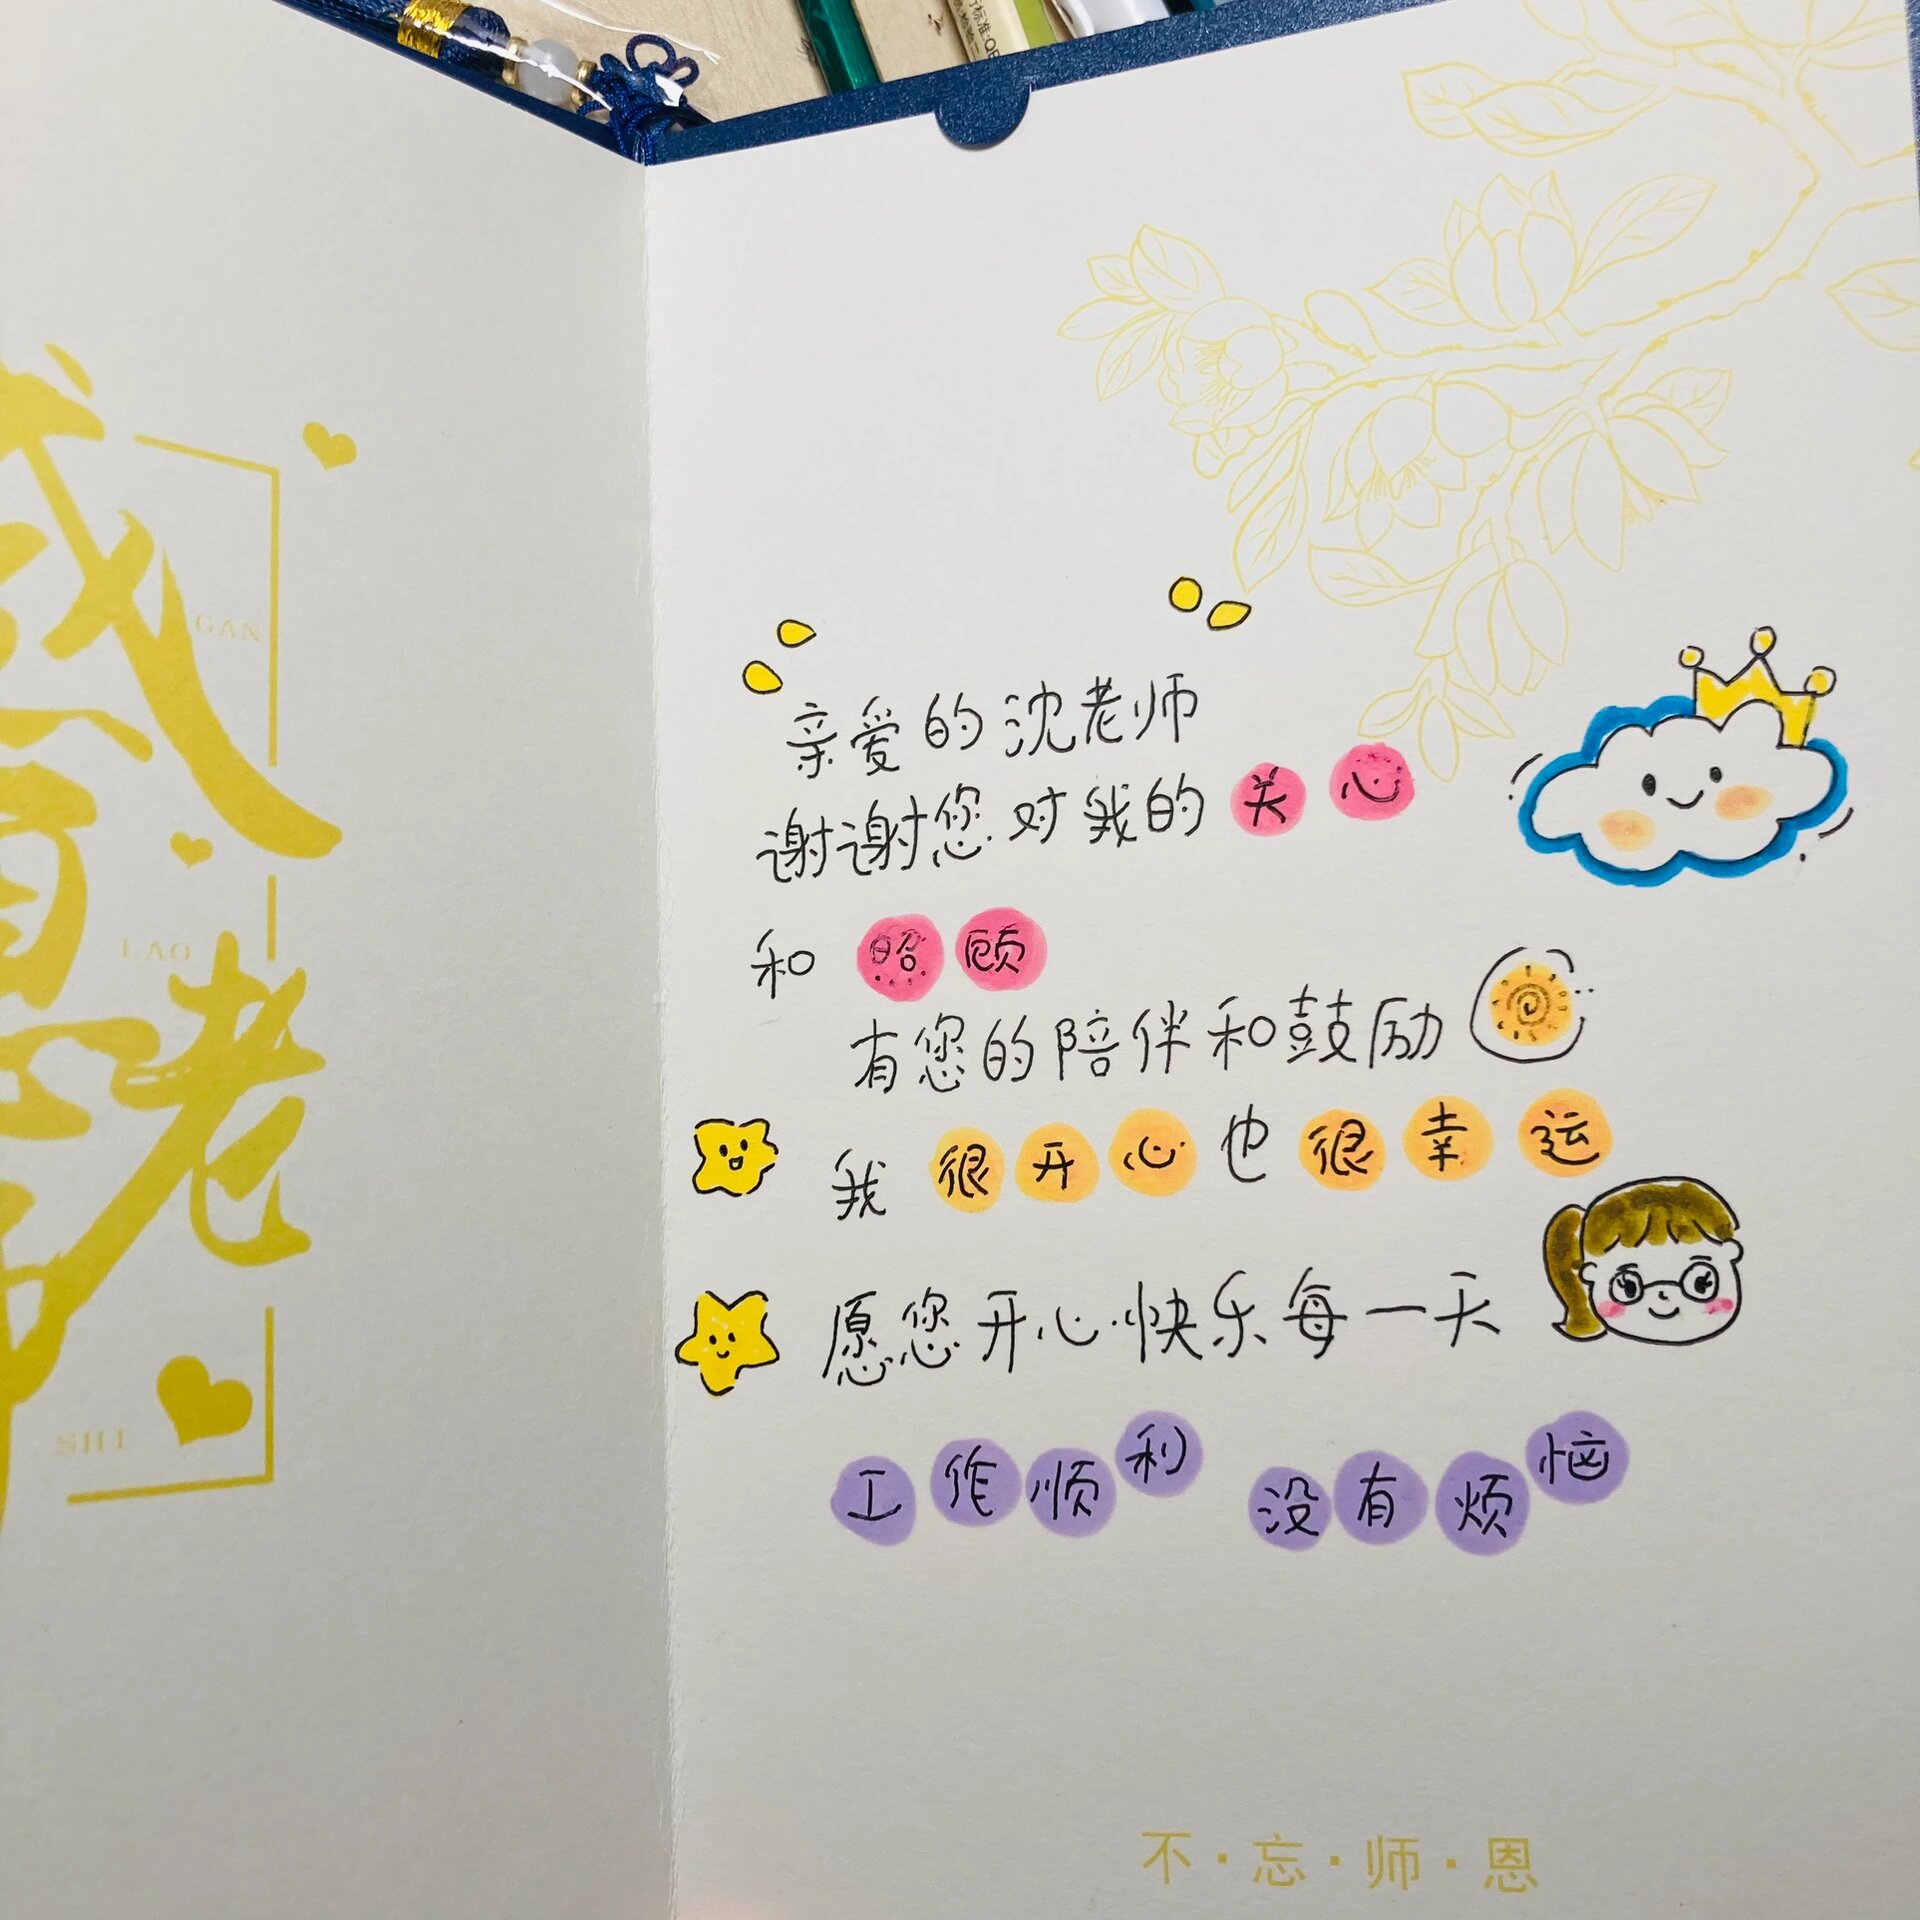 感
GAN
恩
LAO
老
师
SHI
亲爱的沈老师
谢谢您对我的关心
和照顾
有您的陪伴和鼓励
我很开心也很幸运
愿您开心快乐每一天
工作顺利 没有烦恼
不·忘·师·恩